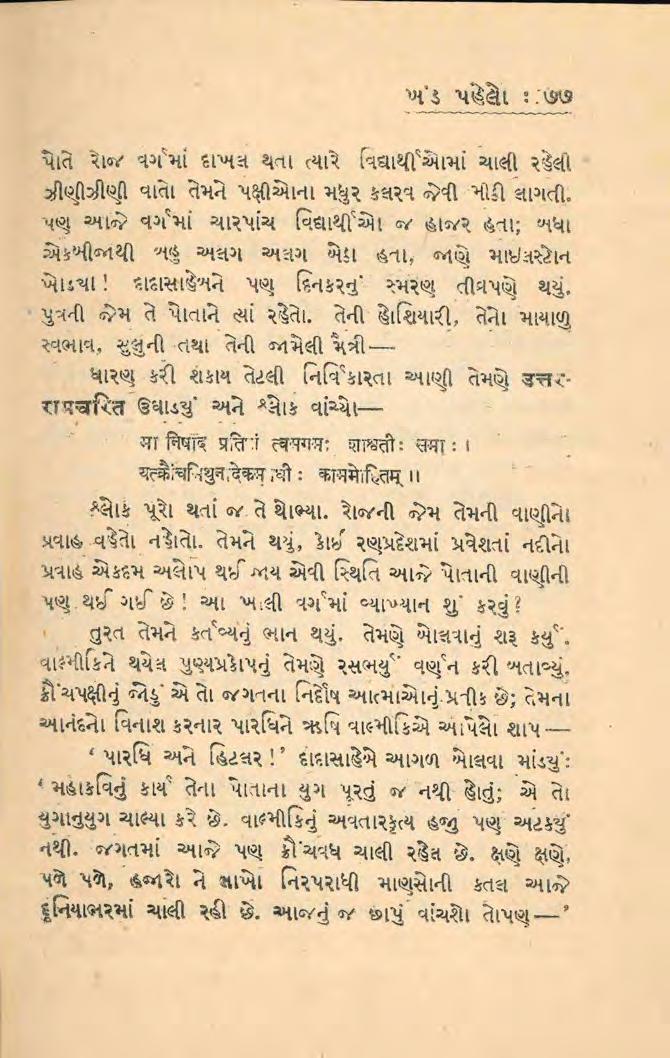 ખંડ પહેલો : ૭૭
પોતે રોજ વર્ગમાં દાખલ થતા ત્યારે વિદ્યાર્થીઓમાં ચાલી રહેલી
ઝીણીઝીણી વાતો તેમને પક્ષીઓના મધુર કલરવ જેવી મીઠી લાગતી.
પણ આજે વર્ગમાં ચારપાંચ વિદ્યાર્થીઓ જ હાજર હતા; બધા
એકબીજાથી બહુ અલગ અલગ બેઠા હતા, જાણે માઇલસ્ટોન
ખોડ્યા! દાદાસાહેબને પણ દિનકરનું સ્મરણ તીવ્રપણે થયું.
પુત્રની જેમ તે પોતાને ત્યાં રહેતો. તેની હોશિયારી, તેનો માયાળુ
સ્વભાવ, સુલુની તથા તેની જામેલી મૈત્રી—
ધારણ કરી શકાય તેટલી નિર્વિકારતા આણી તેમણે ઉત્તર-
રામચરિત ઉઘાડ્યું અને શ્લોક વાંચ્યો—
मा निषाद प्रतिष्ठां त्वमगमः शाश्वतीः समाः ।
यत्क्रौंचमिथुनादेकमवधीः काममोहितम् ॥
શ્લોક પૂરો થતાં જ તે થોભ્યા. રોજની જેમ તેમની વાણીનો
પ્રવાહ વહેતો નહોતો. તેમને થયું, કોઈ રણપ્રદેશમાં પ્રવેશતાં નદીનો
પ્રવાહ એકદમ અલોપ થઈ જાય એવી સ્થિતિ આજે પોતાની વાણીની
પણ થઈ ગઈ છે! આ ખાલી વર્ગમાં વ્યાખ્યાન શું કરવું?
તુરત તેમને કર્તવ્યનું ભાન થયું. તેમણે બોલવાનું શરૂ કર્યું.
વાલ્મીકિને થયેલ પુણ્યપ્રકોપનું તેમણે રસભર્યું વર્ણન કરી બતાવ્યું.
ક્રૌંચપક્ષીનું જોડું એ તો જગતના નિર્દોષ આત્માઓનું પ્રતીક છે; તેમના
આનંદનો વિનાશ કરનાર પારધિને ઋષિ વાલ્મીકિએ આપેલો શાપ—
‘પારધિ અને હિટલર!’ દાદાસાહેબે આગળ બોલવા માંડ્યું:
‘મહાકવિનું કાર્ય તેના પોતાના યુગ પૂરતું જ નથી હોતું; એ તો
યુગાનુયુગ ચાલ્યા કરે છે. વાલ્મીકિનું અવતારકૃત્ય હજુ પણ અટક્યું
નથી. જગતમાં આજે પણ ક્રૌંચવધ ચાલી રહેલ છે. ક્ષણે ક્ષણે,
પળે પળે, હજારો ને લાખો નિરપરાધી માણસોની કતલ આજે
દુનિયાભરમાં ચાલી રહી છે. આજનું જ છાપું વાંચશો તોપણ—’